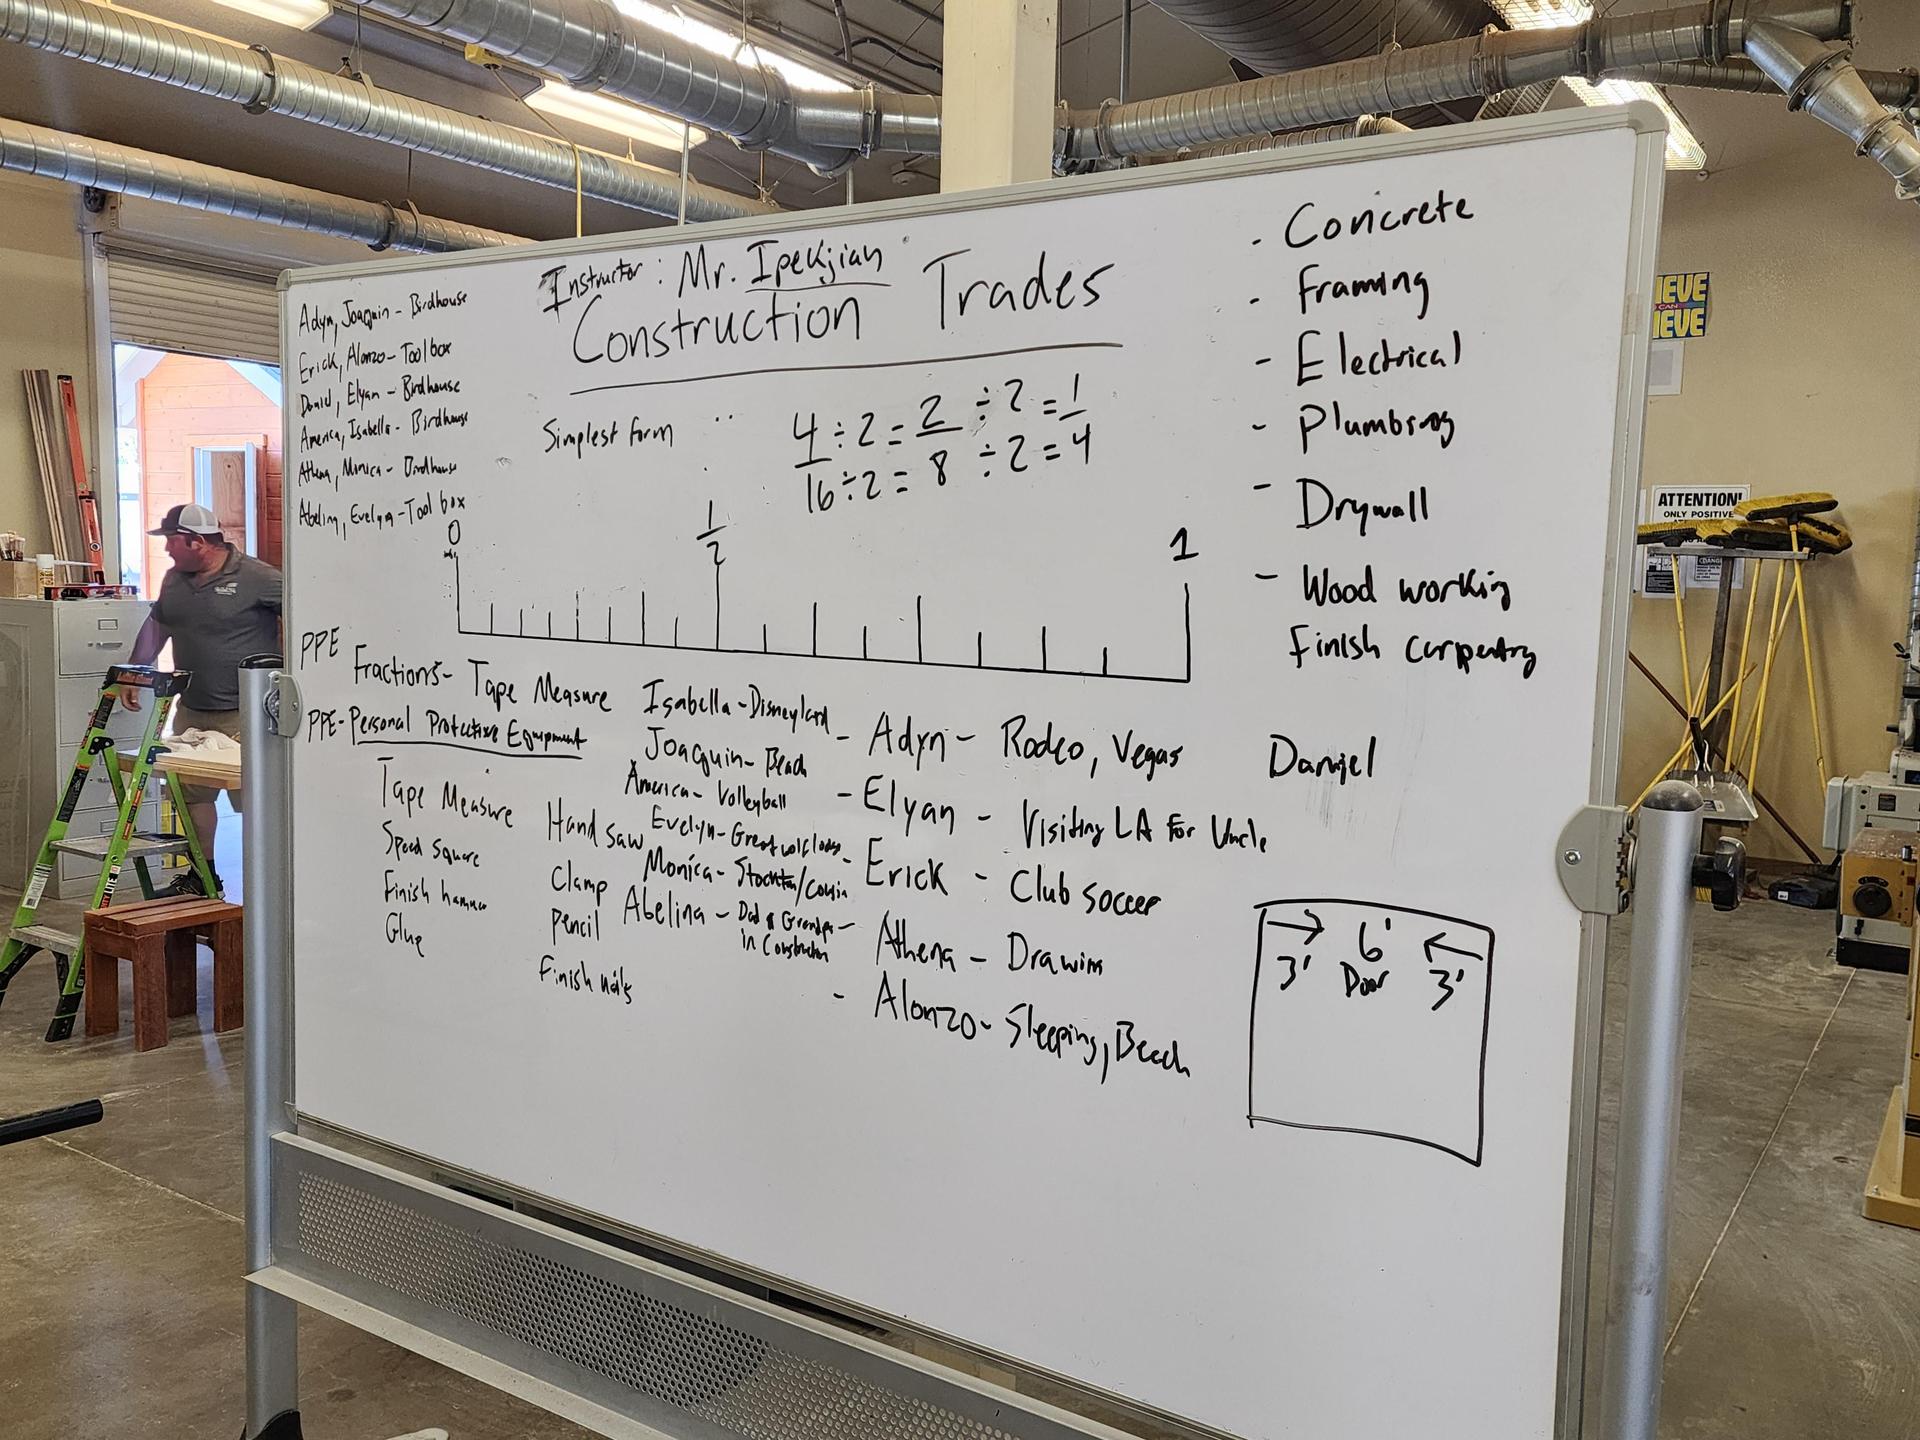 Instructor: Mr. Ipekjian
Construction Trades
Adyn, Joaquin - Birdhouse
Erick, Alonzo - Toolbox
Daniel, Elyan - Birdhouse
America, Isabella - Birdhouse
Athena, Monica - Birdhouse
Abelina, Evelyn - Tool box
Simplest form
4 ÷ 2 = 2 ÷ 2 = 1
16 ÷ 2 = 8 ÷ 2 = 4
0 1/2 1
- Concrete
- Framing
- Electrical
- Plumbing
- Drywall
- Wood working
Finish carpentry
PPE
Fractions - Tape Measure
PPE - Personal Protective Equipment
Tape Measure
Speed square
Finish hammer
Glue
Hand saw
Clamp
Pencil
Finish nails
Isabella - Disneyland
Joaquin - Beach
America - Volleyball
Evelyn - Great wolf lodge
Monica - Stockton/Cousin
Abelina - Dad & Grandpa
in Construction
- Adyn - Rodeo, Vegas
- Elyan - Visiting LA For Uncle
- Erick - Club soccer
- Athena - Drawing
- Alonzo - Sleeping, Beach
Daniel
6'
3' Door 3'
IEVE
CAN
IEVE
ATTENTION!
ONLY POSITIVE